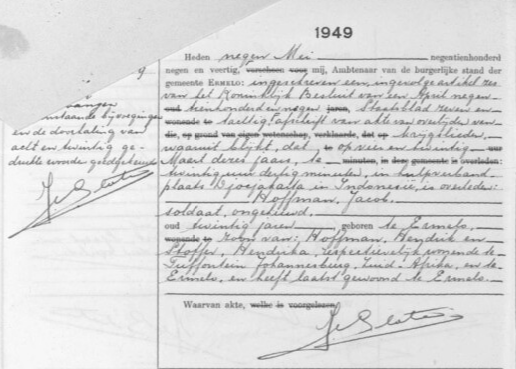 1949
9
Heden negen Mei negentienhonderd
negen en veertig, verscheen voor mij, Ambtenaar van de burgerlijke stand der
gemeente ERMELO: ingeschreven een, ingevolge artikel zes
van het Koninklijk Besluit van een April negen-
oud tienhonderd en negen jaren, Staatsblad zeven en
wonende te tachtig, afschrift van akte van overlijden van
die, op grond van eigen wetenschap, verklaarde, dat op krijgslieden,
waaruit blijkt, dat, op vier en twintig uur
Maart dezes jaars, te minuten, in deze gemeente is overleden:
twintig uur dertig minuten, in hulpverband-
plaats Djocjakarta in Indonesië, is overleden:
Hoffman, Jacob.
soldaat, ongehuwd.
oud twintig jaren, geboren te Ermelo,
wonende te zoon van: Hoffman, Hendrik en
Stoffer, Hendrika, respectievelijk wonende te
Johannesburg, Zuid-Afrika, en te
Ermelo, en heeft laatst gewoond te Ermelo.
Waarvan akte, welke is voorgelezen
staande bijvoegingen
en de doorhaling van
acht en twintig ge-
drukte woorden goedgekeurd